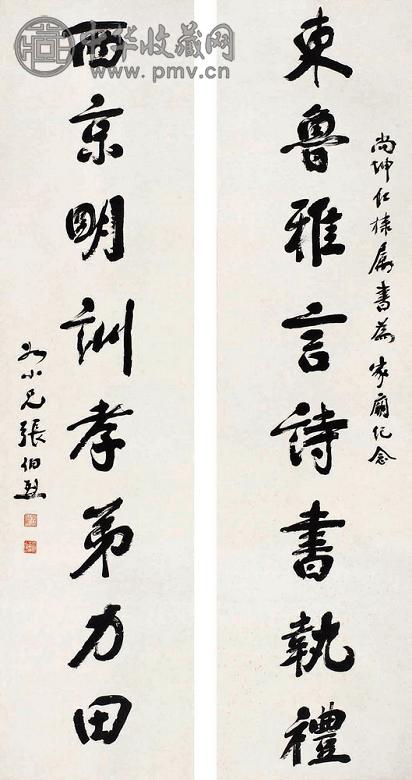 中华收藏网
www.pmv.cn
尚坤仁棣屬書為家廟紀念
東魯雅言詩書執禮
西京明訓孝弟力田
如小兄張伯烈